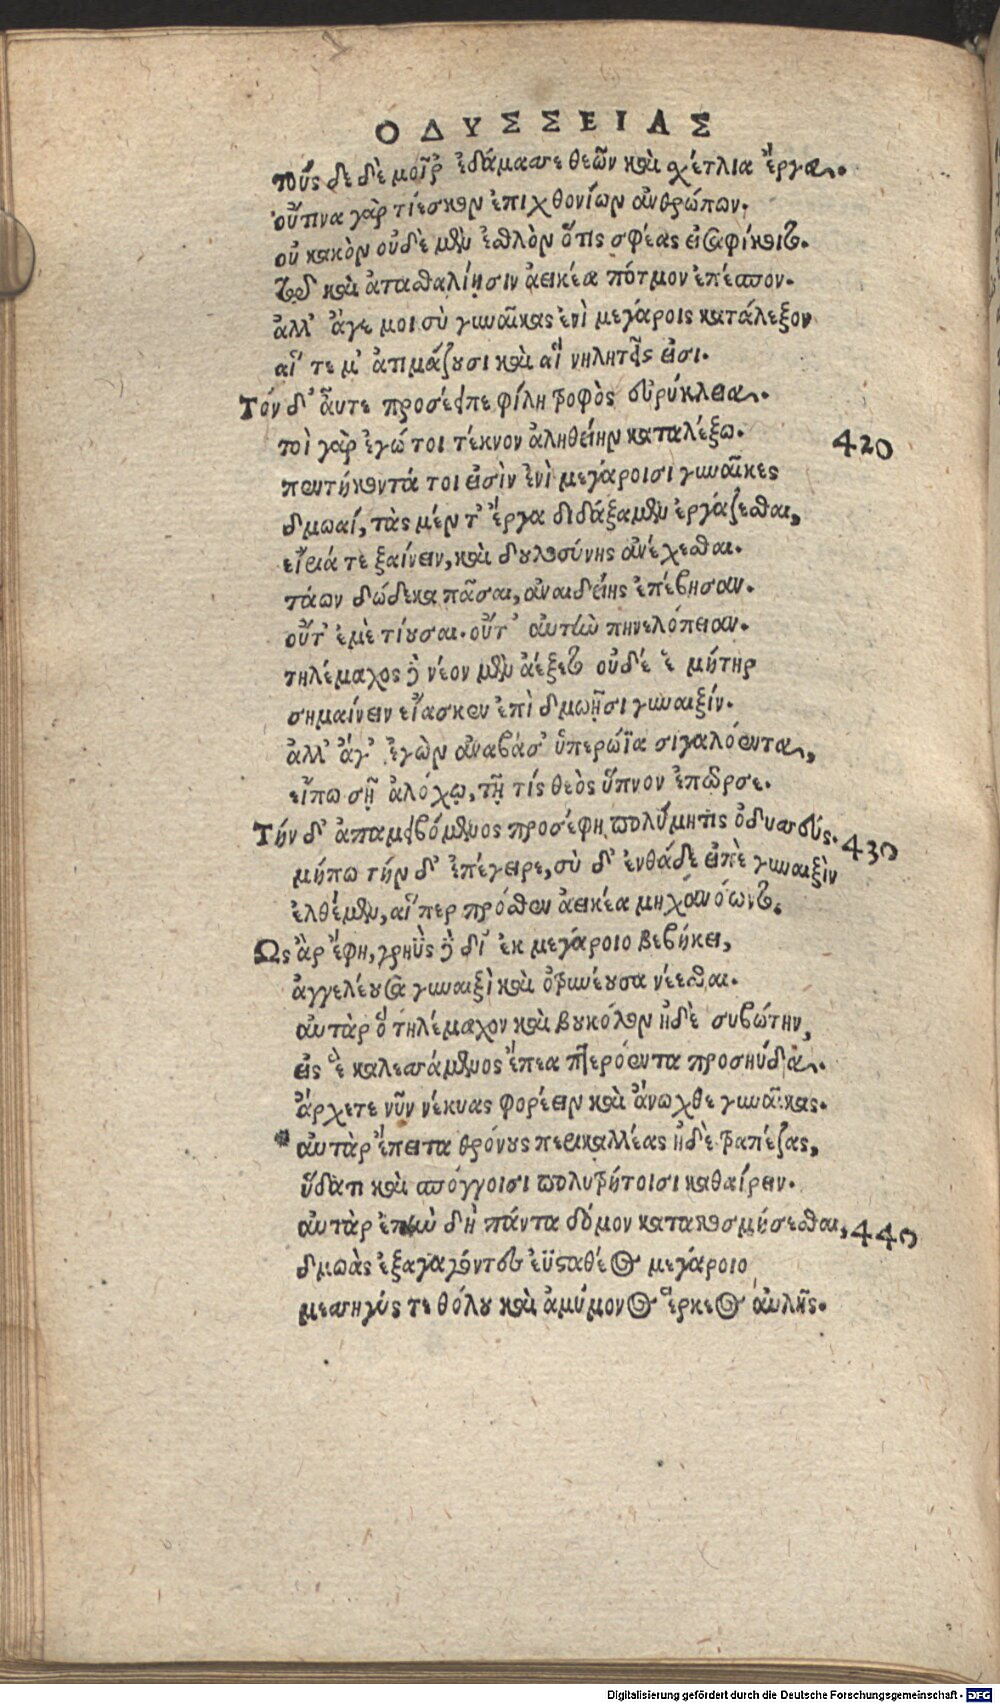 ΟΔΥΣΣΕΙΑΣ
τοὺς δὲ δὲ μοῖρ' ἐδάμασσε θεῶν καὶ σχέτλια ἔργα.
οὔτινα γὰρ τίεσκον ἐπιχθονίων ἀνθρώπων.
οὐ κακὸν οὐδὲ μὲν ἐσθλὸν ὅτις σφέας εἰσαφίκοιτο.
τῷ καὶ ἀτασθαλίῃσιν ἀεικέα πότμον ἐπέσπον.
ἀλλ' ἄγε μοι σὺ γυναῖκας ἐνὶ μεγάροις κατάλεξον
αἵ τε μ' ἀτιμάζουσι καὶ αἳ νηλητεῖς εἰσι.
Τόν δ' αὖτε προσέειπε φίλη τροφὸς εὐρύκλεια.
τοὶ γὰρ ἐγώ τοι τέκνον ἀληθείην καταλέξω. 420
πεντήκοντά τοι εἰσὶν ἐνὶ μεγάροισι γυναῖκες
δμωαί, τὰς μέν τ' ἔργα διδάξαμεν ἐργάζεσθαι,
εἴριά τε ξαίνειν, καὶ δουλοσύνης ἀνέχεσθαι.
τάων δώδεκα πᾶσαι, ἀναιδείης ἐπέβησαν.
οὔτ' ἐμὲ τίουσαι. οὔτ' αὐτὴν πηνελόπειαν.
τηλέμαχος δὲ νέον μὲν ἀέξετο οὐδέ ἑ μήτηρ
σημαίνειν εἴασκεν ἐπὶ δμωῇσι γυναιξίν.
ἀλλ' ἄγ' ἐγὼν ἀναβάσ' ὑπερώϊα σιγαλόεντα,
εἴπω σῇ ἀλόχῳ, τῇ τίς θεὸς ὕπνον ἐπῶρσε.
Τήν δ' ἀπαμειβόμενος προσέφη πολύμητις ὀδυσσεύς. 430
μήπω τήν δ' ἐπέγειρε, σὺ δ' ἐνθάδε εἰπὲ γυναιξὶν
ἐλθέμεν, αἵ περ πρόσθεν ἀεικέα μηχανόωντο.
Ὣς ἂρ ἔφη, γρηῢς δὲ δι' ἐκ μεγάροιο βεβήκει,
ἀγγελέουσα γυναιξὶ καὶ ὀτρυνέουσα νέεσθαι.
αὐτὰρ ὃ τηλέμαχον καὶ βουκόλον ἠδὲ συβώτην,
εἰς ἓ καλεσσάμενος ἔπεα πτερόεντα προσηύδα.
ἄρχετε νῦν νέκυας φορέειν καὶ ἄνωχθε γυναῖκας.
* αὐτὰρ ἔπειτα θρόνους περικαλλέας ἠδὲ τραπέζας,
ὕδατι καὶ σπόγγοισι πολυτρήτοισι καθαίρειν.
αὐτὰρ ἐπὴν δὴ πάντα δόμον κατακοσμήσεσθαι, 440
δμωὰς ἐξαγαγόντες ἐϋσταθέος μεγάροιο
μεσσηγύς τε θόλου καὶ ἀμύμονος ἕρκεος αὐλῆς.
Digitalisierung gefördert durch die Deutsche Forschungsgemeinschaft - DFG